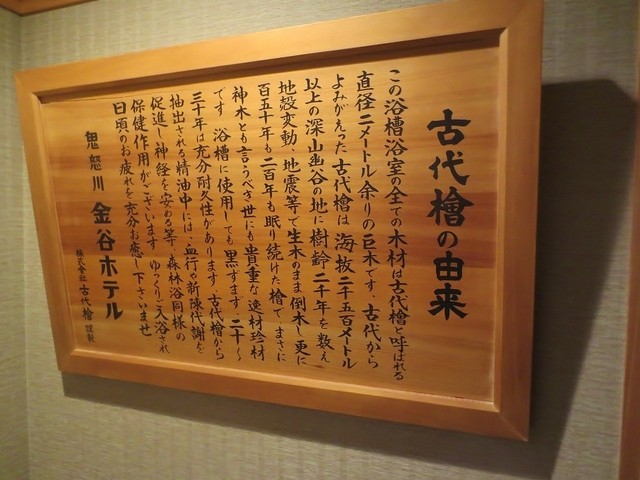 古代檜の由来
この浴槽浴室の全ての木材は古代檜と呼ばれる
直径二メートル余りの巨木です、古代から
よみがえった古代檜は海抜二千五百メートル
以上の深山幽谷の地に樹齢二千年を数え
地殻変動、地震等で生木のまま倒木し更に
百五十年も二百年も眠り続けた檜で、まさに
神木とも言うべき世にも貴重な逸材珍材
です 浴槽に使用しても黒ずまず、二十〜
三十年は充分耐久性があります、古代檜から
抽出される精油中には、血行や新陳代謝を
促進し神経を安める等、森林浴同様の
保健作用がございます ゆっくりご入浴され
日頃のお疲れを充分お癒し下さいませ
鬼怒川 金谷ホテル
株式会社 古代檜 謹製